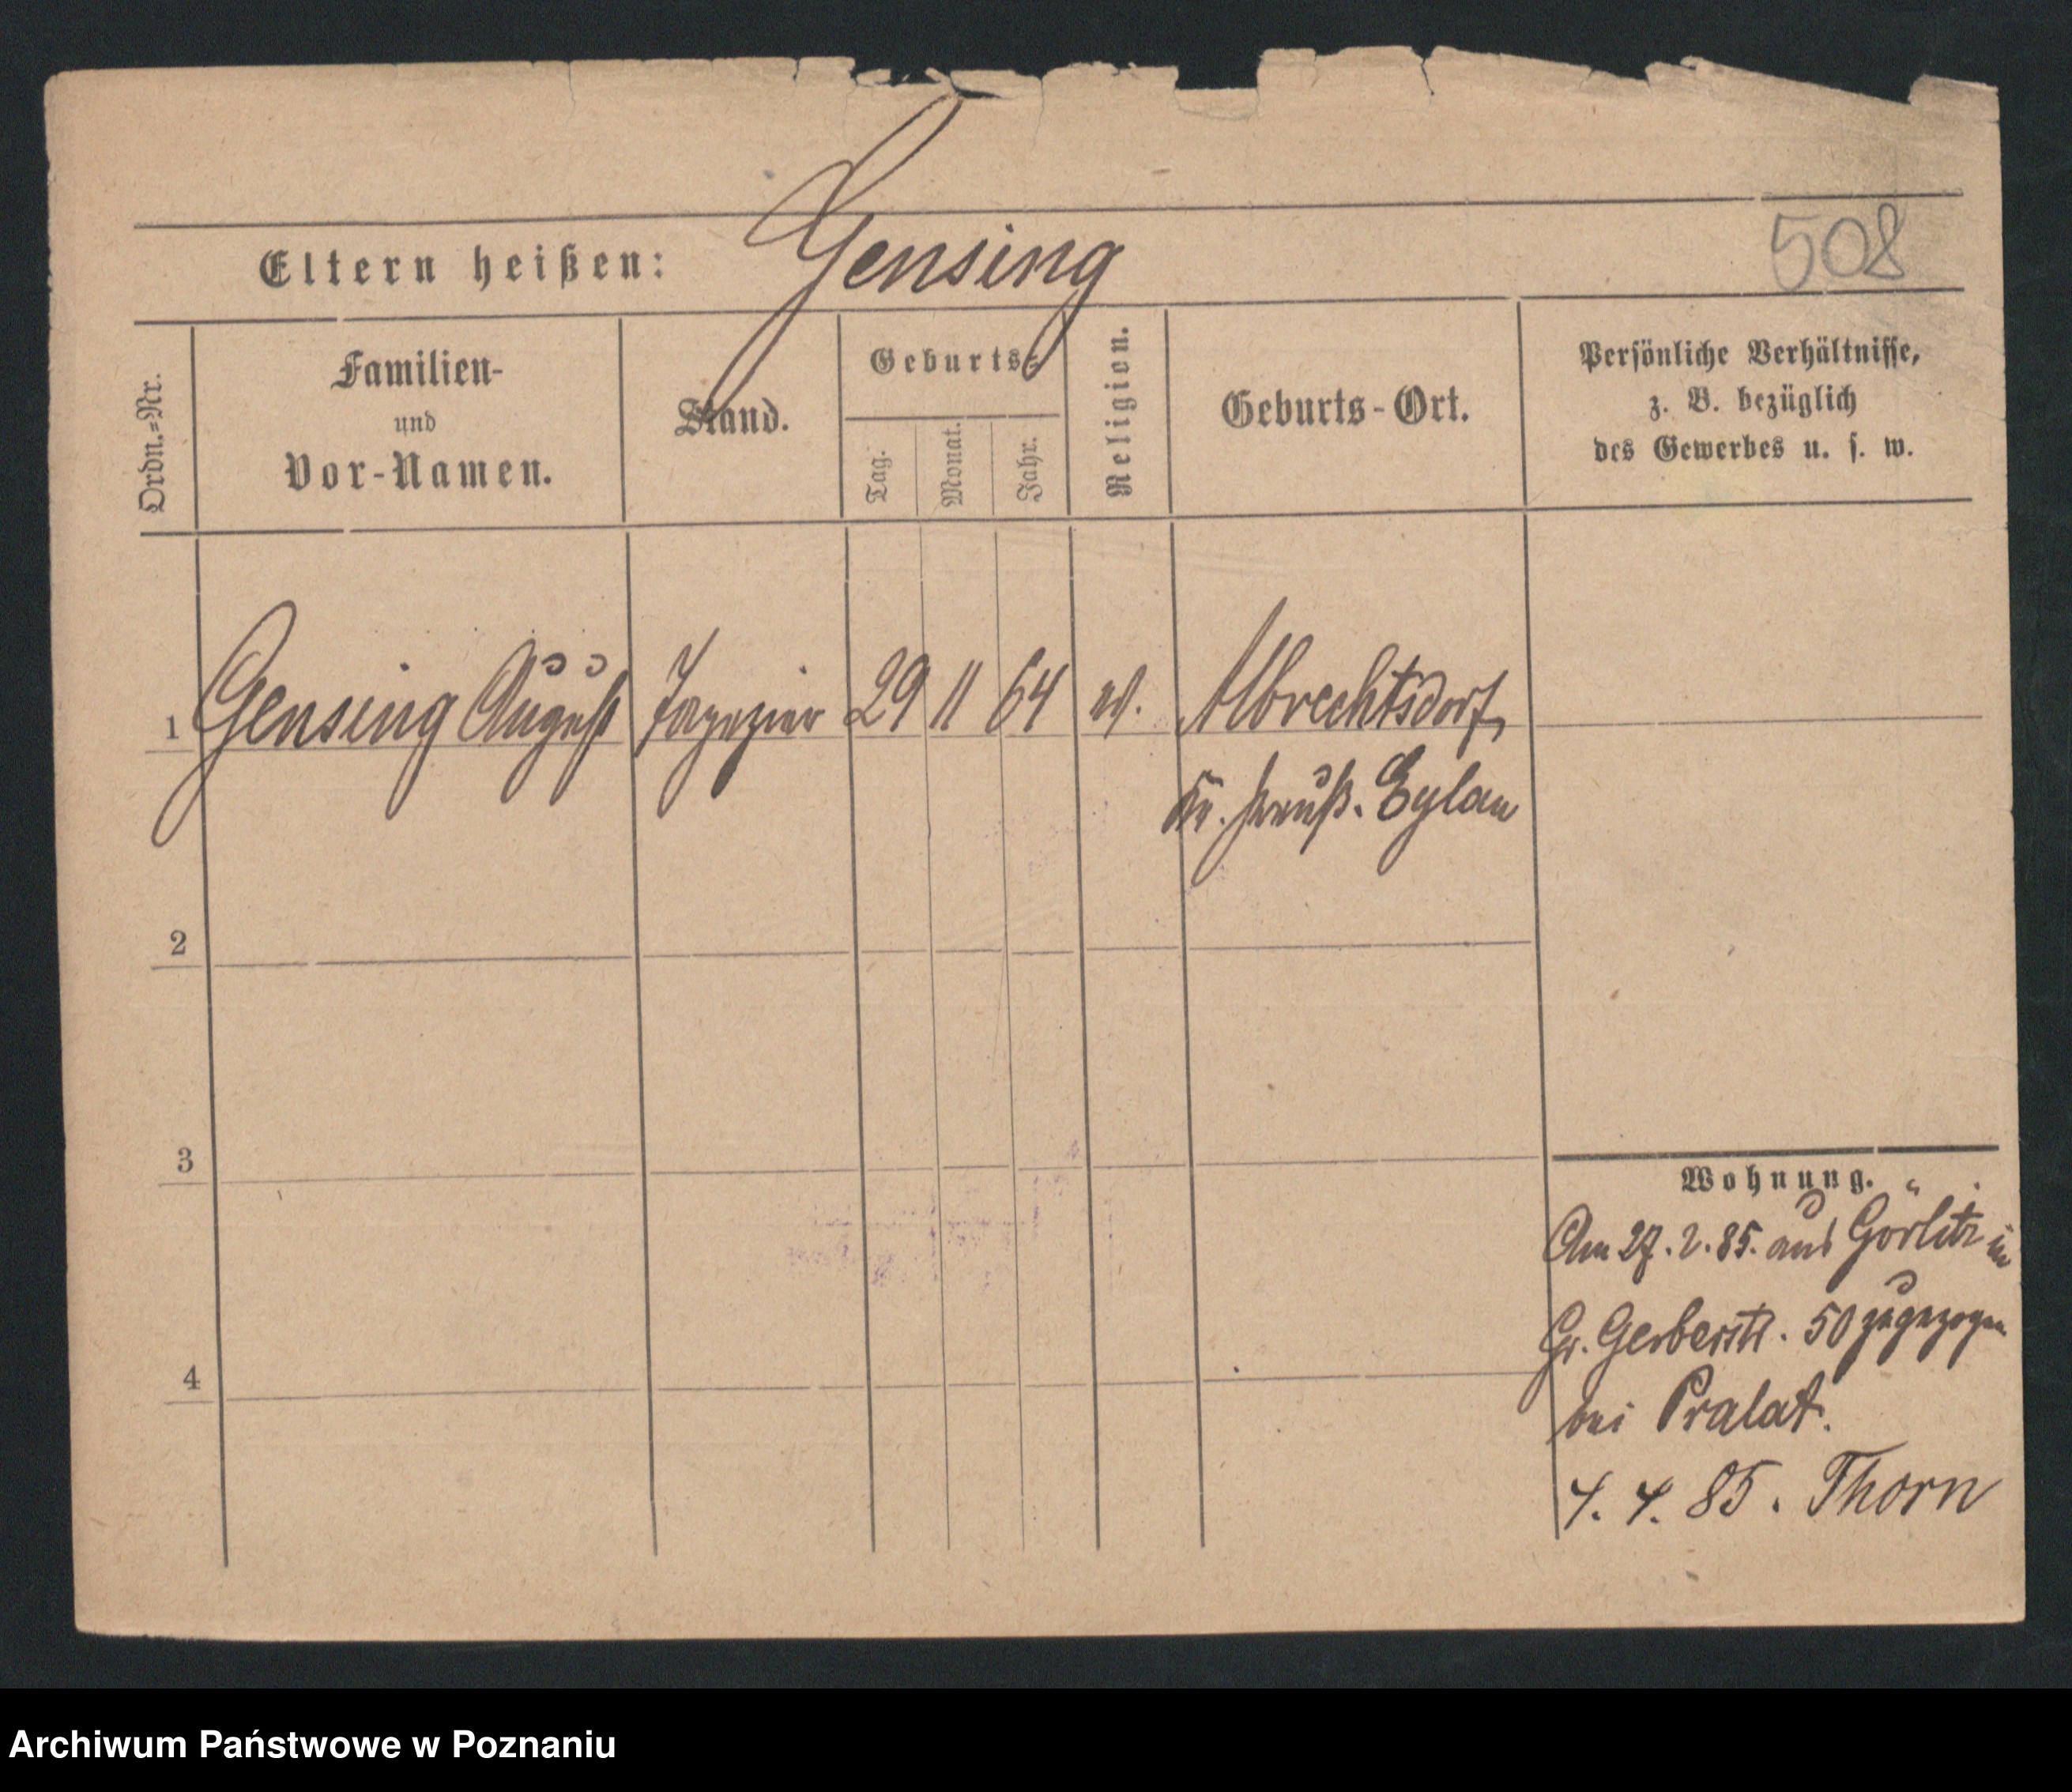 508
Eltern heißen: Gensing
Ordn.=Nr.
Familien-
und
Vor-Namen.
Stand.
Geburts=
Tag.
Monat.
Jahr.
Religion.
Geburts-Ort.
Persönliche Verhältnisse,
z. B. bezüglich
des Gewerbes u. s. w.
1 Gensing August Tapezier 29 11 64 ev. Albrechtsdorf,
Kr. Preuß. Eylau
2
3
4
Wohnung.
Am 27. 2. 85. aus Görlitz in
Gr. Gerberstr. 50 zugezogen
bei Pralat.
4. 4. 85. Thorn
Archiwum Państwowe w Poznaniu